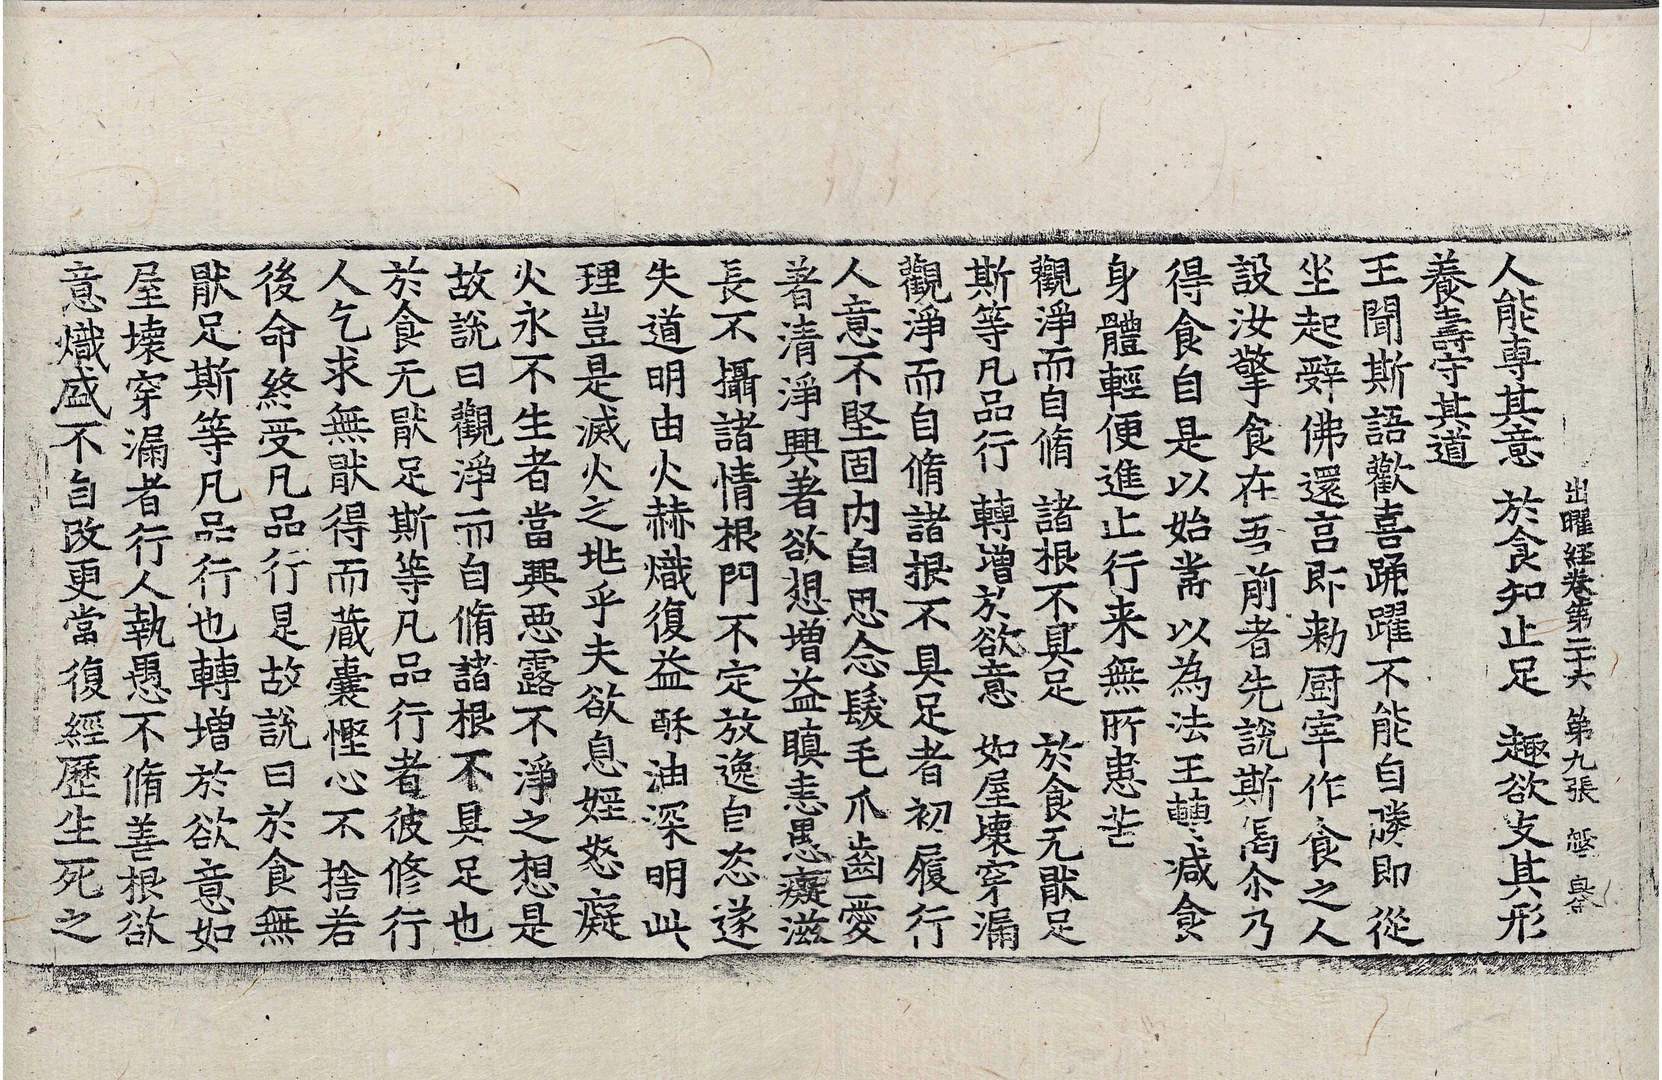 出曜經卷第二十六 第九張
人能專其意 於食知止足 趣欲支其形
養壽守其道
王聞斯語歡喜踊躍不能自勝即從
坐起辭佛還宮即勑厨宰作食之人
設汝擎食在吾前者先說斯偈尒乃
得食自是以始常以為法王轉減食
身體輕便進止行来無所患苦
觀淨而自脩 諸根不具足 於食无猒足
斯等凡品行 轉增於欲意 如屋壞穿漏
觀淨而自脩諸根不具足者初履行
人意不堅固內自思念髮毛爪齒愛
著清淨興著欲想增益瞋恚愚癡滋
長不攝諸情根門不定放逸自恣遂
失道明由火赫熾復益酥油深明此
理豈是滅火之兆乎夫欲息婬怒癡
火永不生者當興惡露不淨之想是
故說曰觀淨而自脩諸根不具足也
於食无猒足斯等凡品行者彼修行
人乞求無猒得而藏囊慳心不捨若
後命終受凡品行是故說曰於食無
猒足斯等凡品行也轉增於欲意如
屋壞穿漏者行人執愚不脩善根欲
意熾盛不自改更當復經歷生死之